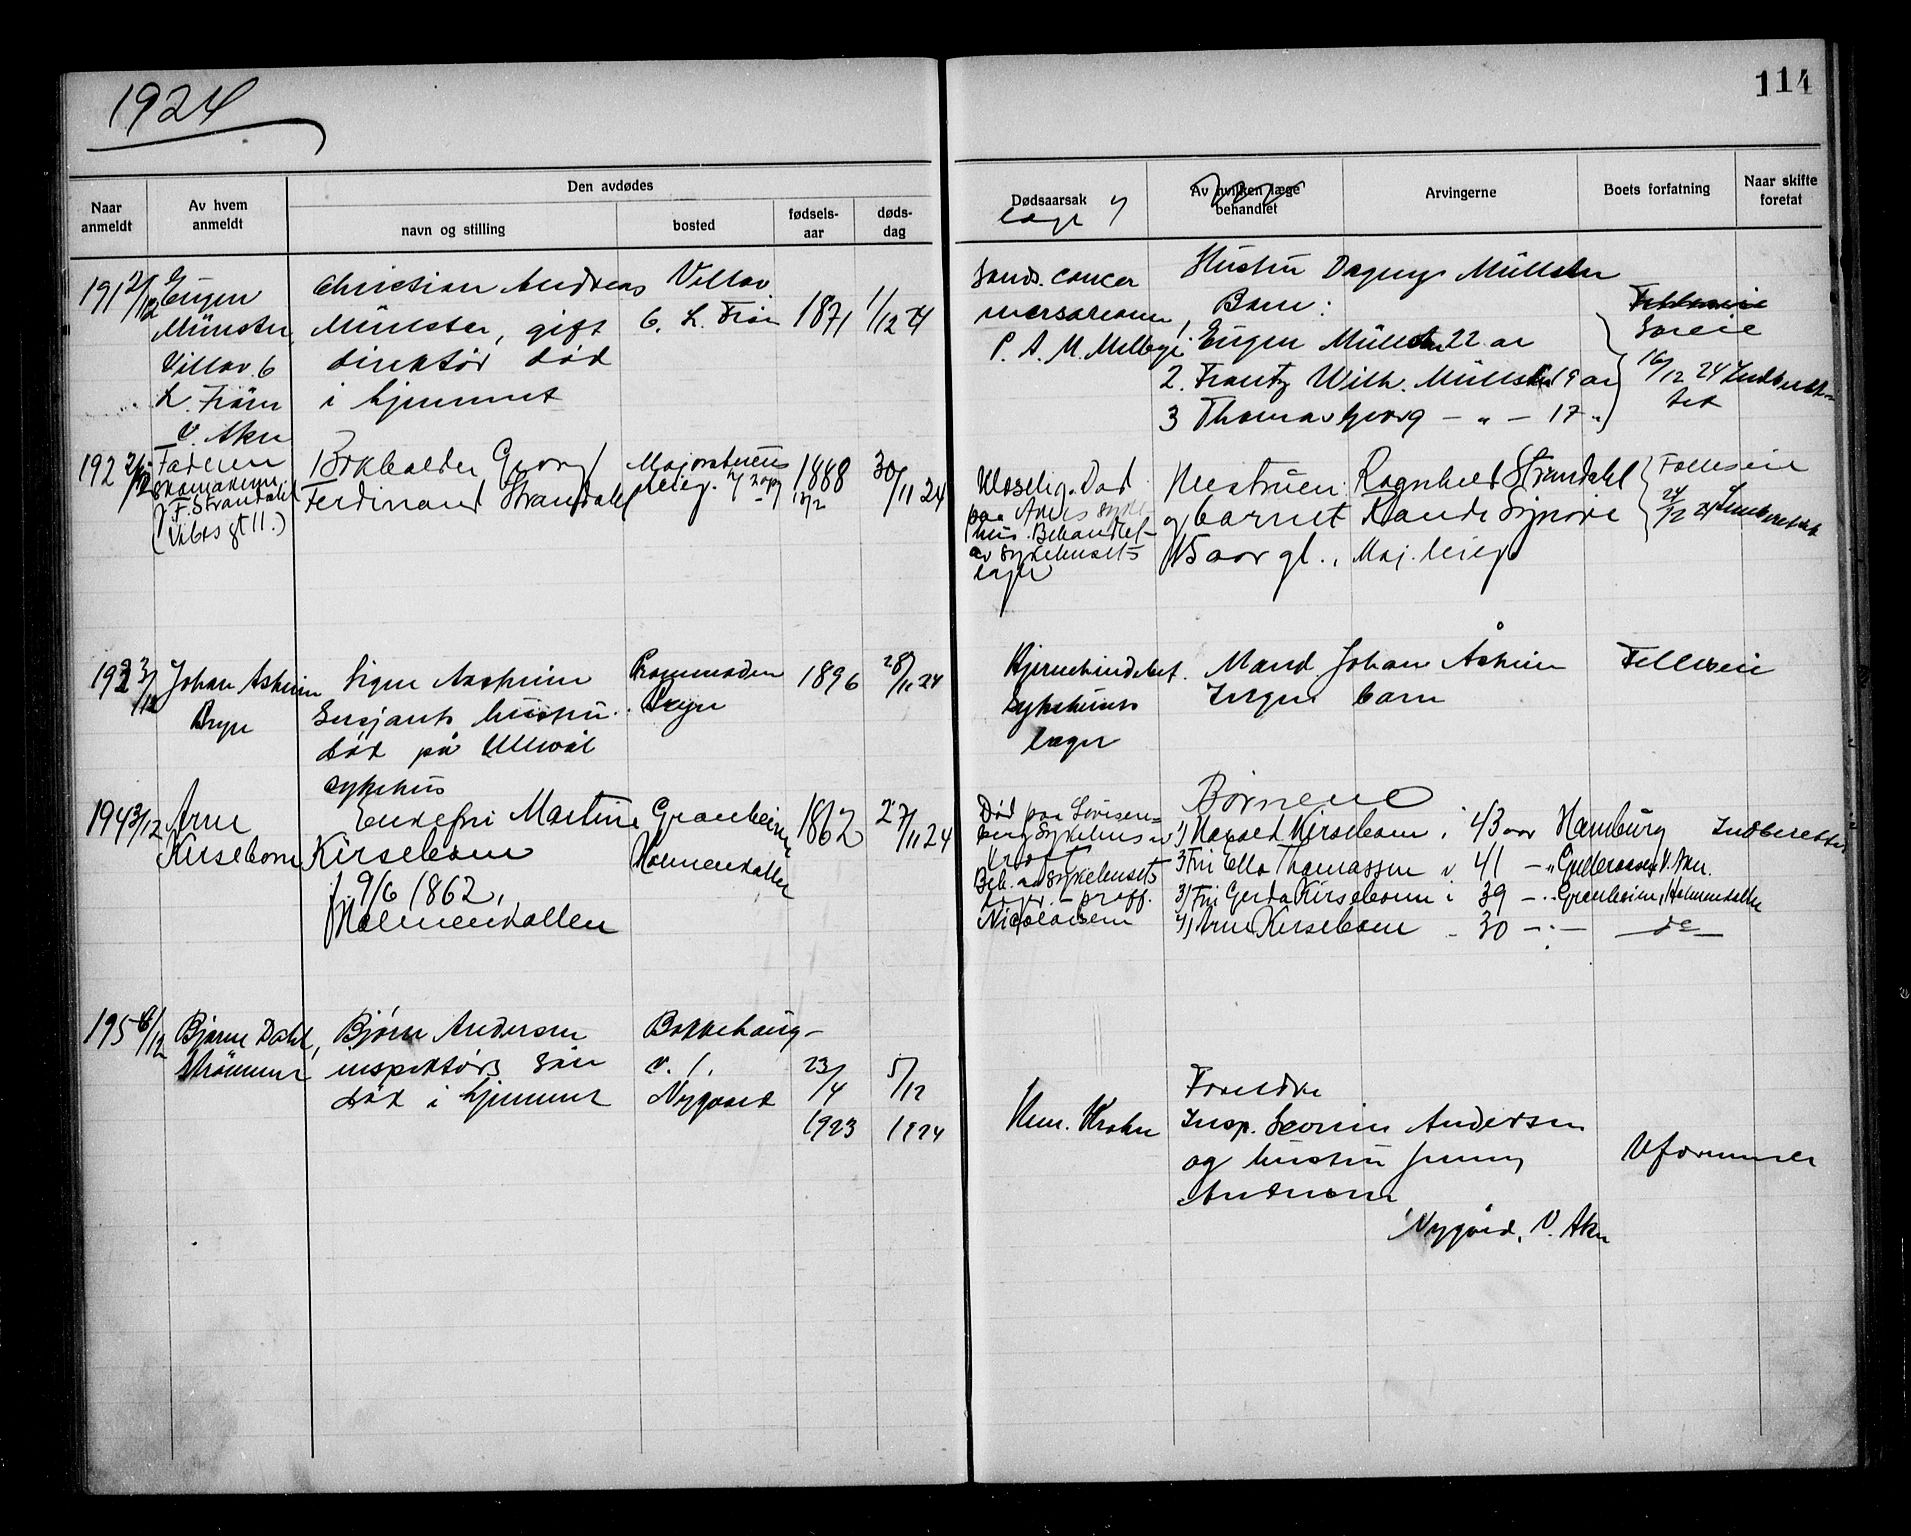 1924
114
Den avdødes
Naar anmeldt
Av hvem anmeldt
navn og stilling
bosted
fødsels-aar
døds-dag
Dødsaarsak
læge
Av hvilken læge behandlet
Arvingerne
Boets forfatning
Naar skifte foretat
191 2/12
Eugen
Münster
Villav. 6
V. Aker
Christian Andreas
Münster, gift
direktør død
i hjemmet
Villav.
6.
1871
1/12 24
cancer
P. A. M. Mellbye
Hustru Dagny Münster
Barn:
1. Eugen Münster 22 ar
2. Frantz Wilh. Münster 19 ar
3 Thomas Georg — " — 17 "
Fælleseie
Særeie
16/12 24 Indberettet
192 2/12
Faderen
skomakerm.
F. Strandahl
(Vibes gt 11.)
Bokholder Georg
Ferdinand Strandahl
Majorstuens
1888
12/2
30/11 24
Død
paa
hus. Behandlet
av sykehusets
læger
Enkefruen: Ragnhild Strandahl
og barnet Randi Synøve
15 aar gl., Maj.
Fælleseie
24/12 24 Innberettet
192 3/12
Johan Askeim
Bryn
Signe Aasheim
Sersjants hustru
død på Ullevål
sykehus
Promenaden
Bryn
1896
28/11 24
Hjernehindebet.
Sykehusets
læger
Mand Johan Åsheim
Ingen barn
Felleseie
194 3/12
Arne
Kirsebom
Enkefru Martine
Kirsebom
f. 9/6 1862,
Holmenkollen
Granheim
Holmenkollen
1862
27/11 24
Død paa Lovisen-
berg Sykehus av
kræft
Beh. av sykehusets
læger. - proff.
Nicolaisen
Børnene
1) Harald Kirsebom i 43 aar Hamburg
Fru Ella Thomassen 41 — " V. Aker.
3) Frk Gerda Kirsebom i 39 — " Granheim, Holmenkollen
4) Arne Kirsebom - 30 — " — do
Indberettet
195 6/12
Bjarne Dahl,
Strømmen
Bjørn Andersen
inspektørs søn
død i hjemmet
Bakkehaug-
v. 1.
Nygaard
23/4
1923
5/12
1924
Krohn
Foreldre
Insp. Andersen
og hustru Jenny
Andersen
Nygård, V. Aker
Uformuende